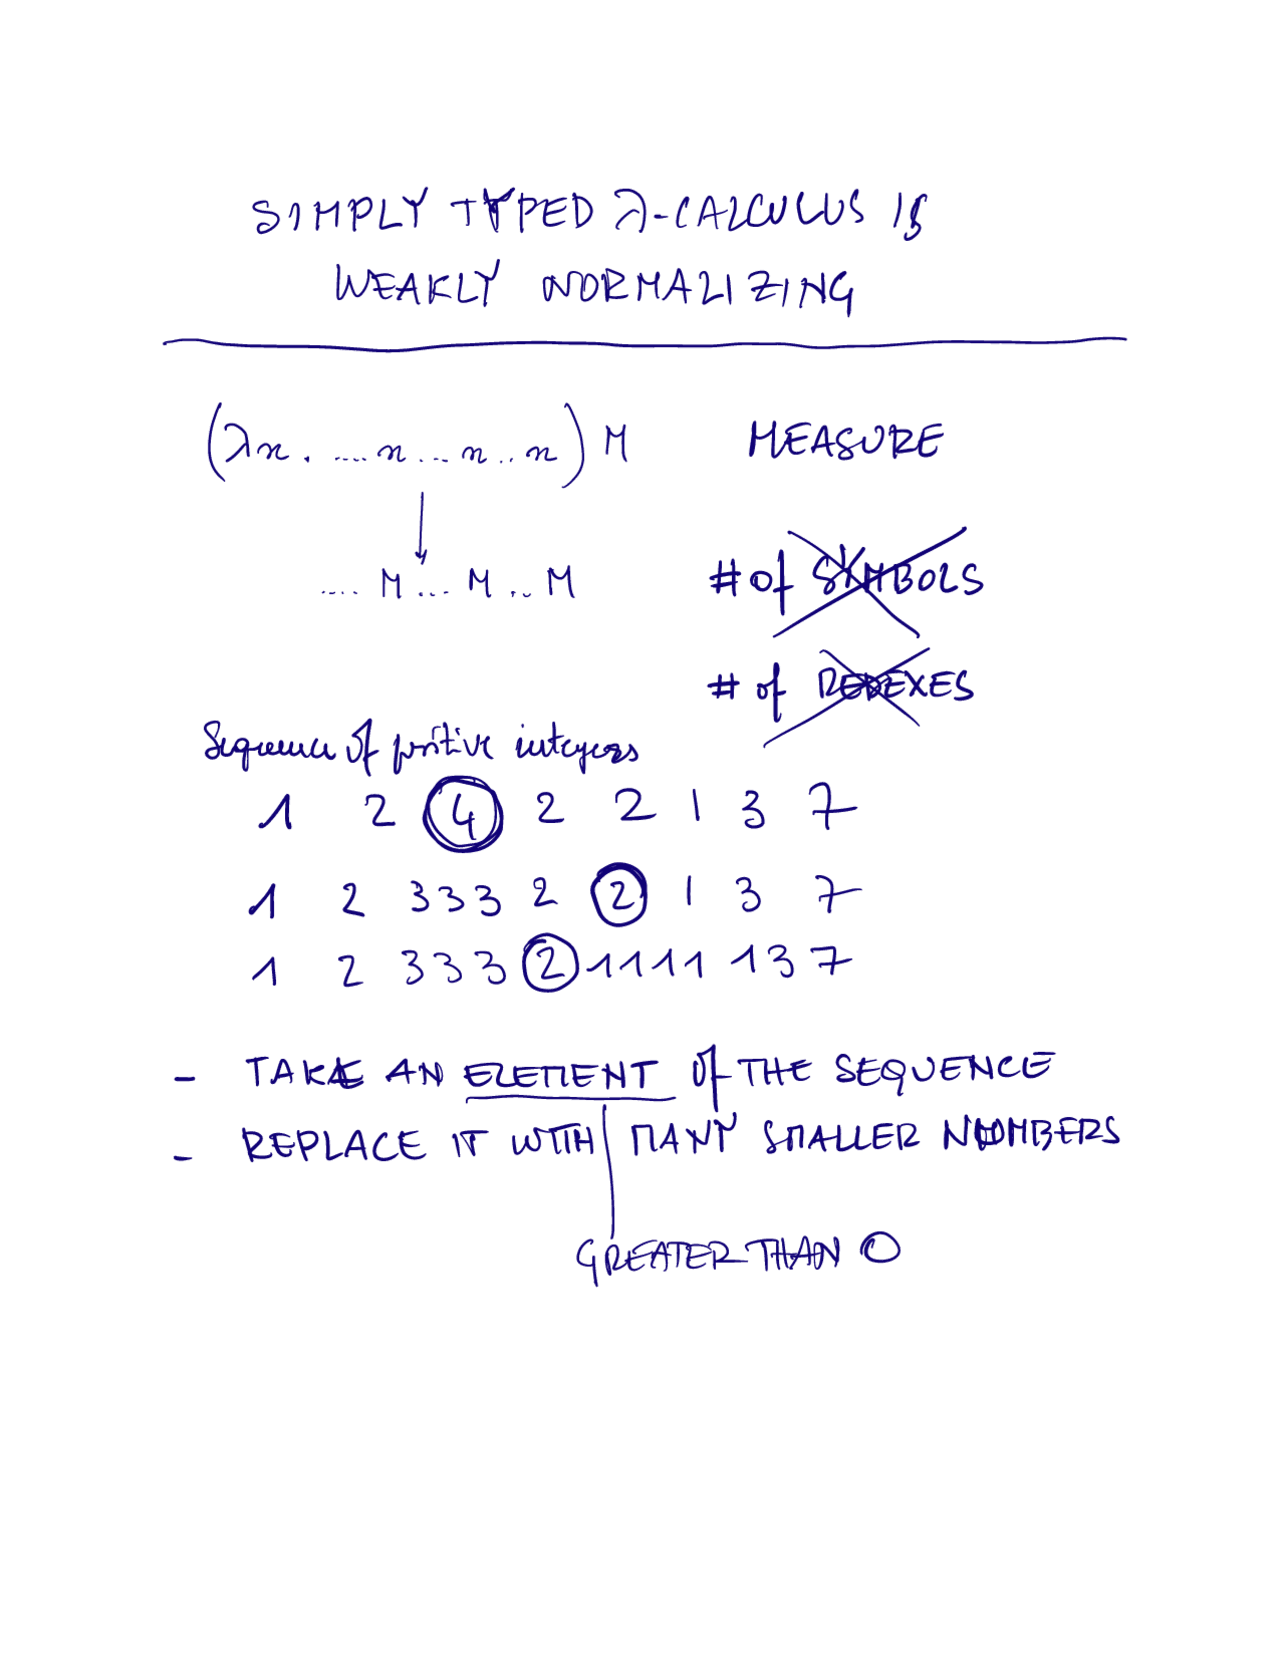 SIMPLY TYPED λ-CALCULUS IS
WEAKLY NORMALIZING
(λx. .... x ... x .. x) M MEASURE
.... M ... M .. M # of SYMBOLS
# of REDEXES
Sequence of positive integers
1 2 4 2 2 1 3 7
1 2 3 3 3 2 2 1 3 7
1 2 3 3 3 2 1 1 1 1 1 3 7
- TAKE AN ELEMENT of THE SEQUENCE
- REPLACE IT WITH MANY SMALLER NUMBERS
GREATER THAN 0